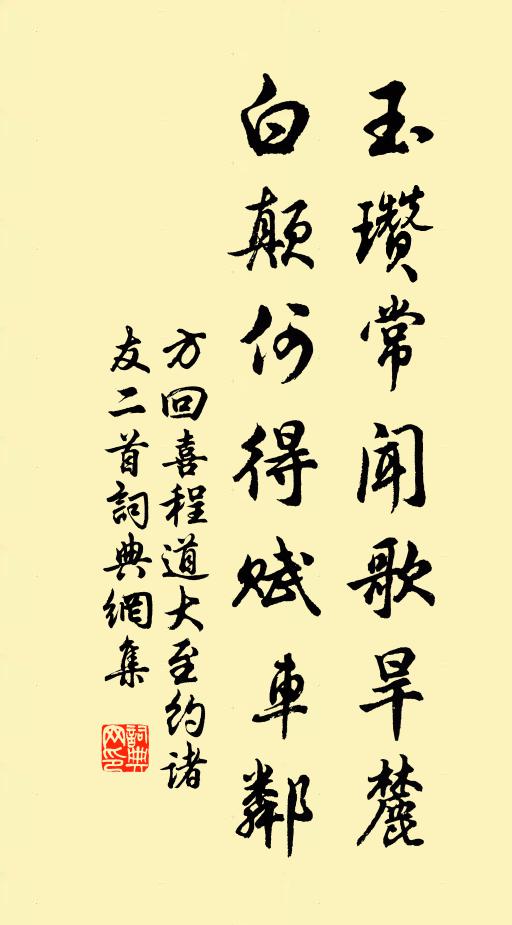 玉瓚常闻歌旱麓
白颠何得赋車鄰
方回喜程道大至约諸
友二首詞典網集
詞典网印